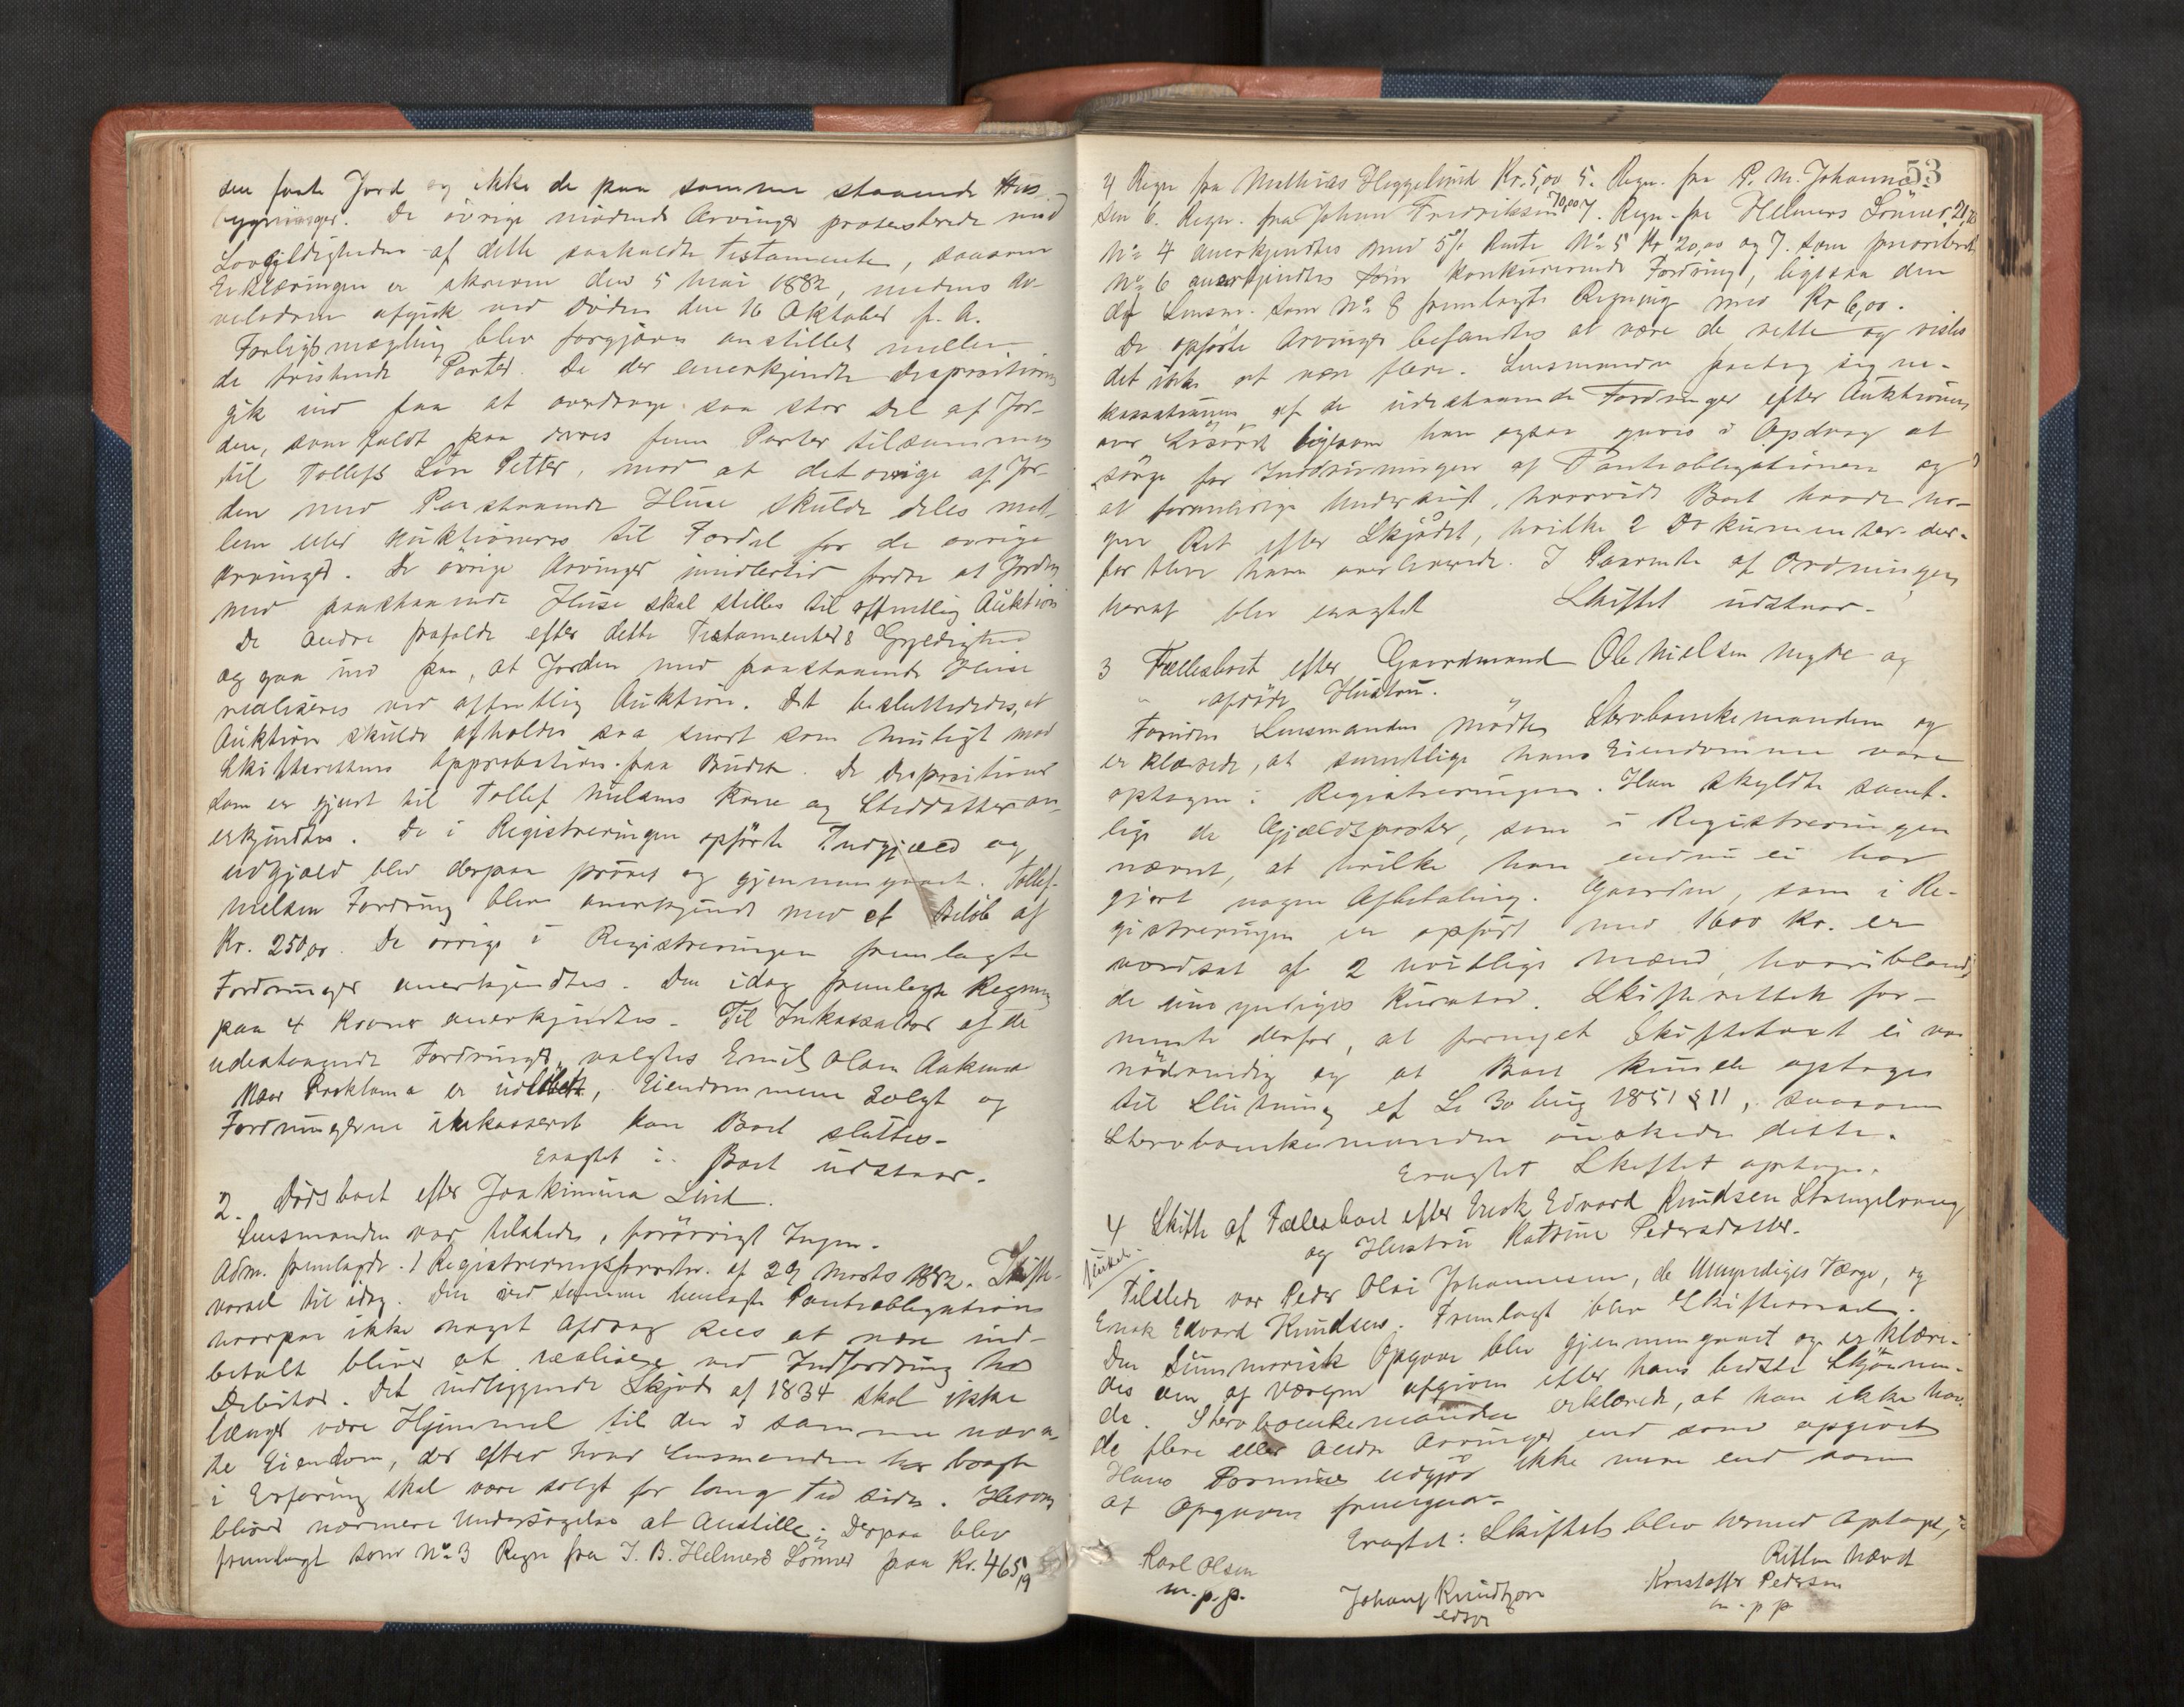 den faste Jord og ikke de paa samme staaende Hus-
bygninger. De övrige mödende Arvinger protesterede mod
Lovgyldigheden af dette saakaldte Testamente, saasom
Erklæringen er skreven den 5 Mai 1882, medens Av-
afgik ved Döden den 16 Oktober f. A.
Forligsmægling blev forgjæves anstillet mellem
de tvistende Parter. De der anerkjendte Dispositionen
gik ind paa at overdrage saa stor Del af Jor-
den, som faldt paa deres fem Parter tilsammen
til Tollefs Sön Petter, mod at det övrige af Jor-
den med Paastaaende Huse skulde deles mel-
lem eller Auktioneres til Fordel for de övrige
Arvinger. De övrige Arvinger imidlertid fordre at Jorden
med paastaaende Huse skal stilles til offentlig Auktion
De andre frafaldt efter dette Testamentets Gyldighed
og gaa ind paa, at Jorden med paastaaende Huse
realiseres ved offentlig Auktion. Det besluttedes, at
Auktion skulde afholdes saa snart som muligt med
Skifterettens Approbation paa Budet. De Dispositioner
som er gjort til Tollef Nielsens Kone og Steddatter an-
erkjendtes. De i Registreringen opförte Indgjæld og
udgjæld blev derpaa prövet og gjennemgaaet. Tollef
Nielsen Fordring blev anerkjendt med et Belöb af
Kr. 250,00. De övrige i Registreringen fremlagte
Fordringer anerkjendtes. Den idag fremlagte Regning
paa 4 Kroner anerkjendtes. Til Inkassator af de
udestaaende Fordringer valgtes Emil Olsen
Naar Proklama er udlöbet, Eiendommene solgt og
Fordringerne inkasseret kan Boet sluttes.
Eragtet: Boet udstaar.
2. Dödsboet efter Joakimina Lind.
Lensmanden var tilstede, forövrigt Ingen.
Adm. fremlagde 1 Registreringsforretn. af 29 Marts 1882. Skifte-
varsel til idag. Den ved samme henlagte Pantobligation
hvorpaa ikke noget Afdrag sees at være ind-
betalt bliver at realisere ved Indfordring hos
Debitor. Det indliggende Skjöde af 1834 skal ikke
længer være Hjemmel til den i samme nævn-
te Eiendom, der efter hvad Lensmanden har bragt
i Erfaring skal være solgt for lang Tid siden. Herom
bliver nærmere Undersögelse at Anstille; Derpaa blev
fremlagt som No 3 Regn fra J. B. Helmers Sönner paa Kr. 465,19
53
4 Regn fra Mathias Heggelund Kr. 5,00 5. Regn. fra P. M. Johanne-
sen 6. Regn. fra Johan Fredriksen 70,00 7. Regn. fra Helmers Sönner
No 4 anerkjendtes med 5% Rente No 5 Kr 20,00 og 7. som prioriteret
No 6 anerkjendtes som konkurrerende Fordring, ligesaa den
af Lensm. som No 8 fremlagte Regning med Kr 6,00.
De opförte Arvinger befandtes at være de rette og vides
det ikke at være flere. Lensmanden paatog sig in-
kassationen af de udestaaende Fordringer efter Auktionen
over Lösöre ligesom han ogsaa gaves i Opdrag at
sörge for Inddrivningen af Pantobligationen og
at foranledige Undersögt, hvorvidt Boet havde no-
gen Ret efter Skjödet, hvilke 2 Dokumenter der-
for blev ham overleverede. I Paavente af Ordningen
heraf blev eragtet Skiftet udstaar.
3 Fællesboet efter Gaardmand Ole Nielsen Myre og
afdöde Hustru.
Foruden Lensmanden mödte Stervboenkemanden og
erklærede, at samtlige hans Eiendomme vare
optagne i Registreringen. Han skyldte samt-
lige de Gjældsposter, som i Registreringen
nævnt, at hvilke han endnu ei har
gjort nogen Afbetaling. Gaarden, som i Re-
gistreringen er opfört med 1600 Kr. er
vordsat af 2 uvillige Mænd, hvoriblandt
de umyndiges Kurator. Skifteretten for-
mente derfor, at fornyet Skiftetaxt ei var
nödvendig og at Boet kunde optages
til Slutning ef. L. 30 Aug 1851 § 11, saasom
Stervboenkemanden önskede dette.
Eragtet Skiftet optages.
4 Skifte af Fælesboet efter Enok Edvard Knudsen
og Hustru Katrine Pedersdatter.
Tilstede var Peder Olai Johannesen, de Umyndiges Værge, og
Enok Edvard Knudsen. Fremlagt blev Skiftevarsel.
Den Summarisk Opgave blev gjennemgaaet og erklære-
des den af Værgen afgiven efter hans bedste Skjönnen-
de. Stervboenkemanden erklærede, at han ikke hav-
de flere eller andre Arvinger end som opgivet
Hans Formue udgjör ikke mere end som
af Opgaven fremgaar.
Eragtet: Skiftet blev hermed Optaget,
Retten Hævet
Karl Olsen
m. p. p.
Johan Knudtzon
edsv
Kristoffer Pedersen
m. p p